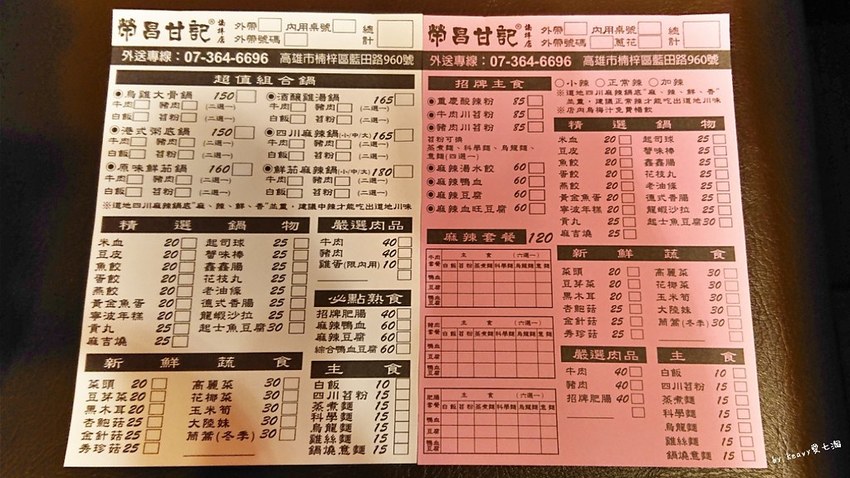 榮昌甘記 ® 德祥店 外帶 內用桌號 總計
外帶號碼
外送專線：07-364-6696 高雄市楠梓區藍田路960號
超值組合鍋
烏雞大骨鍋 150
牛肉 豬肉 (二選一)
白飯 苕粉 (二選一)
酒釀雞湯鍋 165
牛肉 豬肉 (二選一)
白飯 苕粉 (二選一)
港式粥底鍋 150
牛肉 豬肉 (二選一)
白飯 苕粉 (二選一)
四川麻辣鍋(小/中/大) 165
牛肉 豬肉 (二選一)
白飯 苕粉 (二選一)
原味鮮茄鍋 160
牛肉 豬肉 (二選一)
白飯 苕粉 (二選一)
鮮茄麻辣鍋(小/中/大) 180
牛肉 豬肉 (二選一)
白飯 苕粉 (二選一)
※道地四川麻辣鍋底"麻、辣、鮮、香"並重，建議中辣才能吃出道地川味
精選鍋物
米血 20
豆皮 20
魚餃 20
蛋餃 20
燕餃 20
黃金魚蛋 20
寧波年糕 20
貢丸 25
麻吉燒 25
起司球 25
蟹味棒 25
鑫鑫腸 25
花枝丸 25
老油條 25
德式香腸 25
龍蝦沙拉 25
起士魚豆腐 30
嚴選肉品
牛肉 40
豬肉 40
雞蛋(限內用) 10
必點熟食
招牌肥腸 40
麻辣鴨血 60
麻辣豆腐 60
綜合鴨血豆腐 60
新鮮蔬食
菜頭 20
豆芽菜 20
黑木耳 20
杏鮑菇 25
金針菇 25
秀珍菇 25
高麗菜 30
花椰菜 30
玉米筍 30
大陸妹 30
茼蒿(冬季) 30
主食
白飯 10
四川苕粉 15
蒸煮麵 15
科學麵 15
烏龍麵 15
雞絲麵 15
鍋燒意麵 15
榮昌甘記 ® 德祥店 外帶 內用桌號 總計
外帶號碼 蔥花
外送專線：07-364-6696 高雄市楠梓區藍田路960號
招牌主食
重慶酸辣粉 85
牛肉川苕粉 85
豬肉川苕粉 85
苕粉可換
蒸煮麵、科學麵、烏龍麵、
意麵(四選一)
麻辣湯水餃 60
麻辣鴨血 60
麻辣豆腐 60
麻辣鴨血旺豆腐 60
小辣 正常辣 加辣
※道地四川麻辣鍋底"麻、辣、鮮、香"
並重，建議正常辣才能吃出道地川味
※店內烏梅汁免費暢飲
精選鍋物
米血 20
豆皮 20
魚餃 20
蛋餃 20
燕餃 20
黃金魚蛋 20
寧波年糕 20
貢丸 25
麻吉燒 25
起司球 25
蟹味棒 25
鑫鑫腸 25
花枝丸 25
老油條 25
德式香腸 25
龍蝦沙拉 25
起士魚豆腐 30
麻辣套餐 120
牛肉套餐 主食 (六選一)
白飯 苕粉 蒸煮麵 科學麵 烏龍麵 意麵
鴨血
豆腐
豬肉套餐 主食 (六選一)
白飯 苕粉 蒸煮麵 科學麵 烏龍麵 意麵
鴨血
豆腐
肥腸套餐 主食 (六選一)
白飯 苕粉 蒸煮麵 科學麵 烏龍麵 意麵
鴨血
豆腐
新鮮蔬食
菜頭 20
豆芽菜 20
黑木耳 20
杏鮑菇 25
金針菇 25
秀珍菇 25
高麗菜 30
花椰菜 30
玉米筍 30
大陸妹 30
茼蒿(冬季) 30
嚴選肉品
牛肉 40
豬肉 40
招牌肥腸 40
主食
白飯 10
四川苕粉 15
蒸煮麵 15
科學麵 15
烏龍麵 15
雞絲麵 15
鍋燒意麵 15
by keavy愛七淘